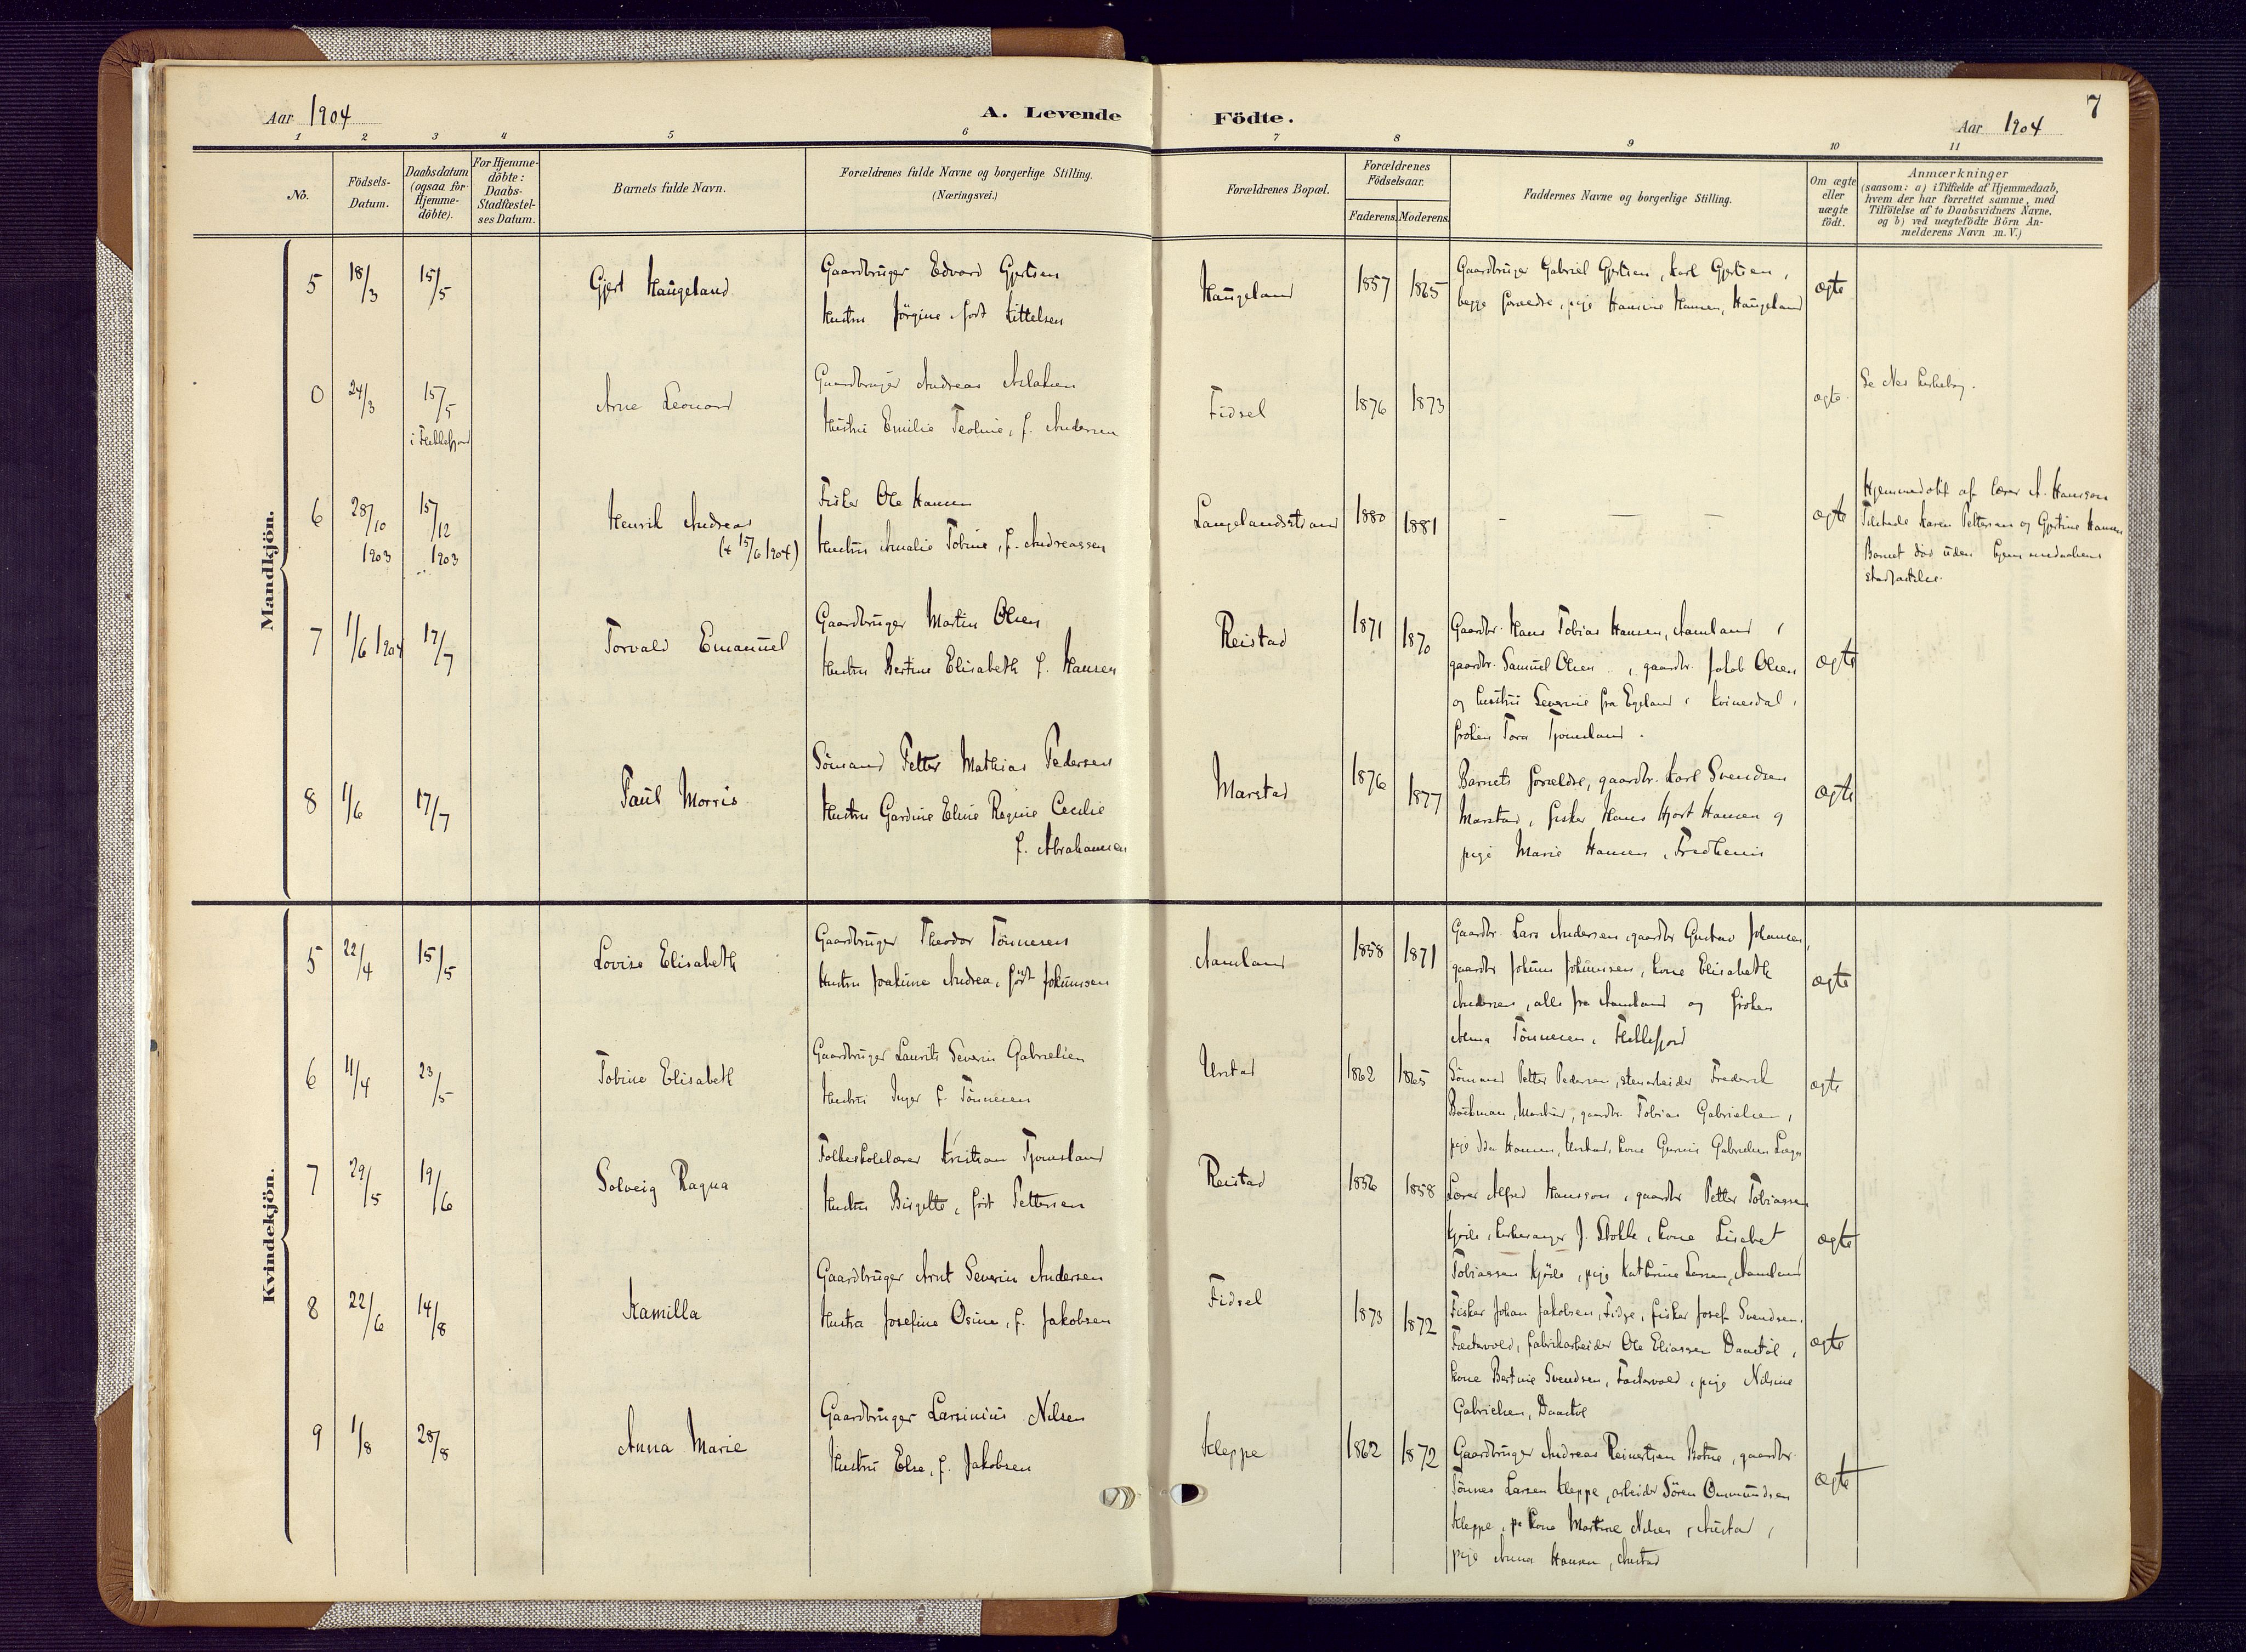 7
Aar 1904
A. Levende Födte.
Aar 1904
1 2 3 4 5 6 7 8 9 10 11
No.
Födsels-Datum.
Daabsdatum (ogsaa for Hjemme-döbte).
For Hjemme-döbte: Daabs-Stadfæstel-ses Datum.
Barnets fulde Navn.
Forældrenes fulde Navne og borgerlige Stilling. (Næringsvei.)
Forældrenes Bopæl.
Forældrenes Födselsaar.
Faderens. Moderens.
Faddernes Navne og borgerlige Stilling.
Om ægte eller uægte födt.
Anmærkninger
(saasom: a) i Tilfælde af Hjemmedaab,
hvem der har forrettet samme, med
Tilföielse af to Daabsvidners Navne,
og b) ved uægtefödte Börn An-
melderens Navn m. V.)
Mandkjön.
5 18/3 15/5 Gjert Haugeland
Gaardbruger Edvard Gjertsen
Hustru Jörgine, født Kittelsen
Haugeland 1857 1865
Gaardbruger Gabriel Gjertsen, Karl Gjertsen,
begge forældre, pige Hansine Hansen, Haugeland
ægte
0 24/3 15/5 i Flekkefjord Arne Leonard
Gaardbruger Andreas Aslaksen
Hustru Emilie Teoline, f. Andersen
Fidsel 1876 1873
ægte
Se Nes kirkebog.
6 28/10 1903 15/12 1903 Henrik Andreas
(† 15/6 1904)
Fisker Ole Hansen
Hustru Amalie Tobine, f. Andreassen
Langelandsstrand 1880 1881
- — —
ægte
Hjemmedøbt af lærer A. Hansson
Tilstede Karen Pettersen og Gjertine Hansen
Barnet dør uden hjemmedaabens
stadfæstelse.
7 1/6 1904 17/7 Torvald Emanuel
Gaardbruger Martin Olsen
Hustru Bertine Elisabeth f. Hansen
Reistad 1871 1870
Gaardbr. Hans Tobias Hansen, Aamland,
gaardbr. Samuel Olsen, gaardbr. Jakob Olsen
og hustru Severine fra Egeland i Kvinesdal,
frøken Tora Tjomsland.
ægte
8 1/6 17/7 Paul Morris
Sømand Petter Mathias Pedersen
Hustru Gardine Eline Regine Cecilie
f. Abrahamsen
Marstad 1876 1877
Barnets forældre, gaardbr. Karl Svendsen
Marstad, fisker Hans Hjort Hansen og
pige Marie Hansen, Fredheim
ægte
Kvindekjön.
5 22/4 15/5 Lovise Elisabeth
Gaardbruger Theodor Tönnesen
Hustru Joakime Andrea, født Jokumsen
Aamland 1858 1871
Gaardbr. Lars Andersen, gaardbr Gustav Johansen,
gaardbr Jokum Jokumsen, kone Elisabeth
Andersen, alle fra Aamland og frøken
Alma Tönnesen, Flekkefjord
ægte
6 11/4 23/5 Tobine Elisabeth
Gaardbruger Laurits Severin Gabrielsen
Hustru Inger f. Tönnesen
Urstad 1862 1865
Sømand Petter Pedersen, stenarbeider Frederik
gaardbr. Tobias Gabrielsen,
pige Ida Hansen, Urstad, kone Gabrielsen
ægte
7 29/5 19/6 Solveig Ragna
Folkeskolelærer Kristian Tjomsland
Hustru Birgitte, født Pettersen
Reistad 1856 1858
Lærer Alfred Hansson, gaardbr Petter Tobiassen
Kjøde, kirkesanger J. Stokke, kone Lisabet
Tobiassen Kjøde, pige Kathrine Larsen, Aamland
ægte
8 22/6 14/8 Kamilla
Gaardbruger Arnt Severin Andersen
Hustru Josefine Osine, f. Jakobsen
Fidsel 1873 1872
Fisker Johan Jakobsen, Fidje, fisker Josef Svendsen,
fabrikarbeider Ole Eliassen Daastøl,
kone Bertine Svendsen, pige Nilsine
Gabrielsen, Daastøl
ægte
9 1/8 28/8 Anna Marie
Gaardbruger Larsinius Nilsen
Hustru Else, f. Jakobsen
Kleppe 1862 1872
Gaardbruger Andreas Reinertsen Botne, gaardbr.
Tönnes Larsen Kleppe, arbeider Sören Ommundsen
Kleppe, kone Martine Nilsen, Austad,
pige Anna Hansen, Austad
ægte